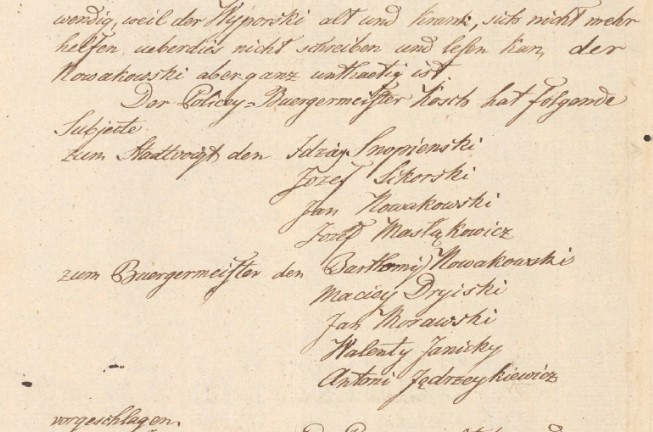 wendig, weil der Wyporski alt und krank, sich nicht mehr
helfen, ueberdies nicht schreiben und lesen kan, der
Nowakowski aber ganz unthaetig ist.
Der Policey=Buergermeister Kosch hat folgende
Subjecte
zum Stadtvoigt den Idzÿ Snopienski
Jozef Sikorski
Jan Nowakowski
Jozef Masłąkowicz
zum Buergermeister den Bartłomiÿ Nowakowski
Maciey Dryiski
Jan Morawski
Walenty Janicky
Antoni Jędrzeykiewicz
vorgeschlagen.